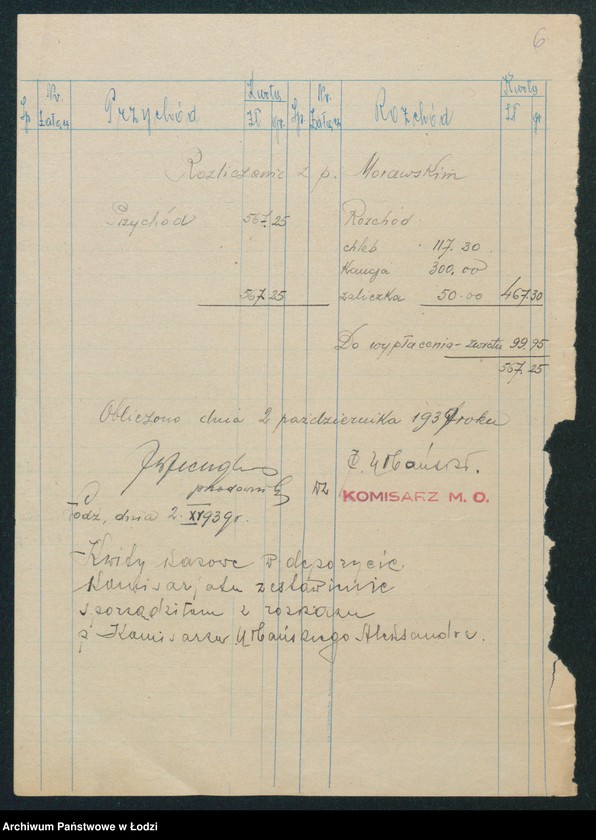 6
Lp. Nr. Załącz. Przychód Kwoty Zł gr. Lp. Nr. Załącz. Rozchód Kwoty Zł gr.
Rozliczenie z p. Morawskim
Przychód 567.25 Rozchód
chleb 117.30
Kaucja 300.00
567.25 zaliczka 50.00 467.30
Do wypłacenia - zwrotu 99.95
567.25
Obliczono dnia 2 października 1939 roku
Urbański.
KOMISARZ M. O.
Łódź, dnia 2. XI 939 r.
Kwity kasowe w depozycie
Komisarjatu zestawienie
sporządziłam z rozkazu
p. Komisarza Urbańskiego Aleksandra.
Archiwum Państwowe w Łodzi